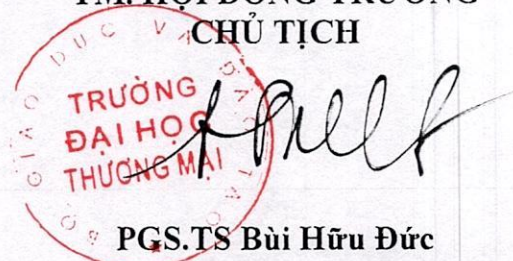 TM. HỘI ĐỒNG TRƯỜNG
CHỦ TỊCH
BỘ GIÁO DỤC VÀ ĐÀO TẠO
TRƯỜNG
ĐẠI HỌC
THƯƠNG MẠI
PGS.TS Bùi Hữu Đức